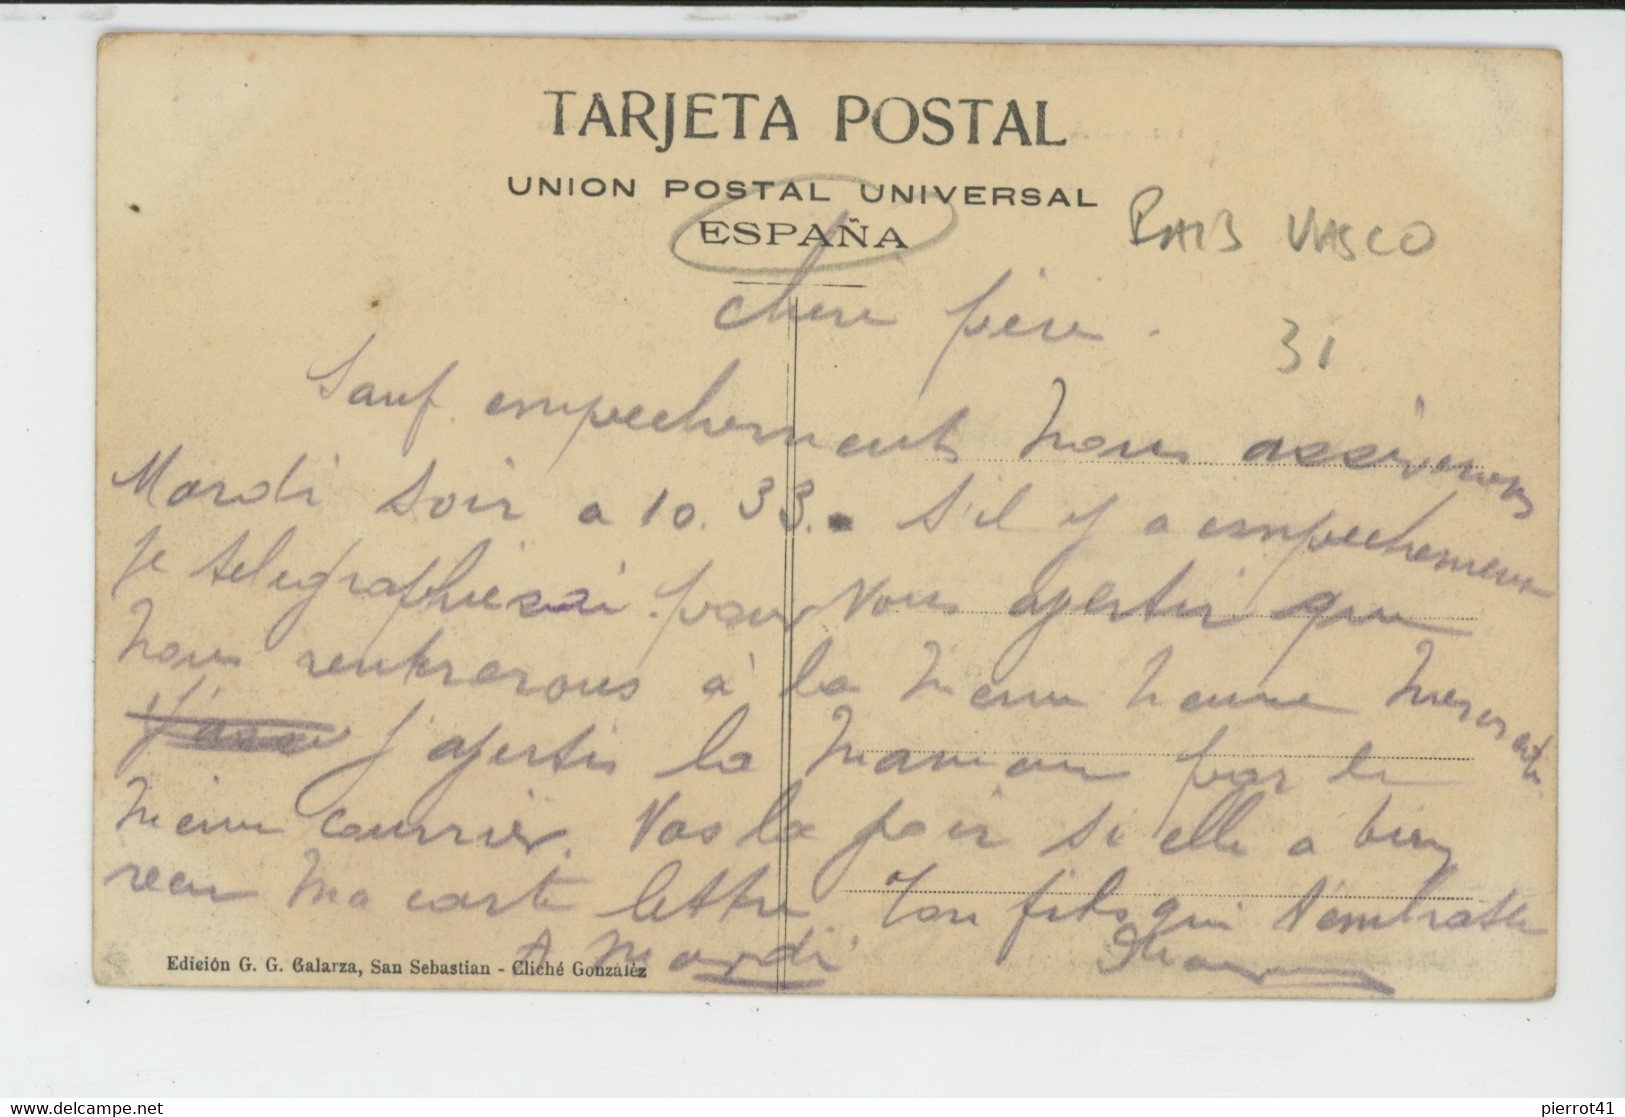 TARJETA POSTAL
UNION POSTAL UNIVERSAL
ESPAÑA
PAIS VASCO
Chere père.
31
Sauf empechements nous arriverons
Mardi soir a 10.33. S'il y a empechement
je telegraphierai pour vous avertir que
nous rentrerons à la meme heure mercredi
J'avertis la maman par le
meme courrier. Vas la voir si elle a bien
recu ma carte lettre. Ton fils qui t'embrasse
A Mardi
Edición G. G. Galarza, San Sebastian - Cliché González
delcampe.net
pierrot41